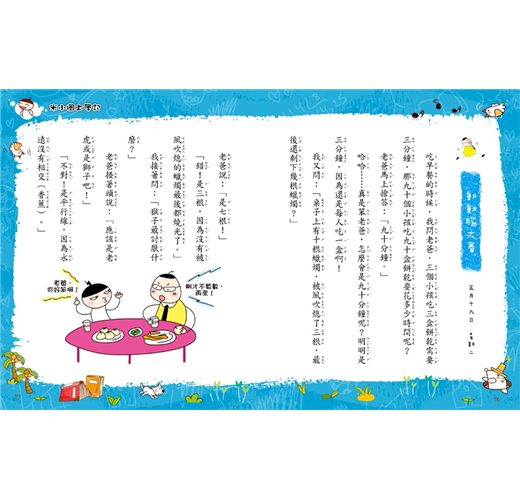 米小圈上學記
動動腦大賽
五月十九日　星期二
吃早餐的時候，我問老爸，三個小孩吃三盒餅乾需要
三分鐘，那九十個小孩吃九十盒餅乾要花多少時間呢？
老爸馬上搶答：「九十分鐘。」
哈哈……真是笨老爸，怎麼會是九十分鐘呢？明明是
三分鐘，因為還是每人吃一盒啊！
我又問：「桌子上有十根蠟燭，被風吹熄了三根，最
後還剩下幾根蠟燭？」
老爸說：「是七根！」
「錯！是三根，因為沒有被
風吹熄的蠟燭最後都燒光了。」
我接著問：「猴子最討厭什
麼？」
老爸接著搶說：「應該是老
虎或是獅子吧！」
「不對！是平行線，因為永
遠沒有相交（香蕉）。」
老爸，
你好笨啊！
剛才不算數，
再來！